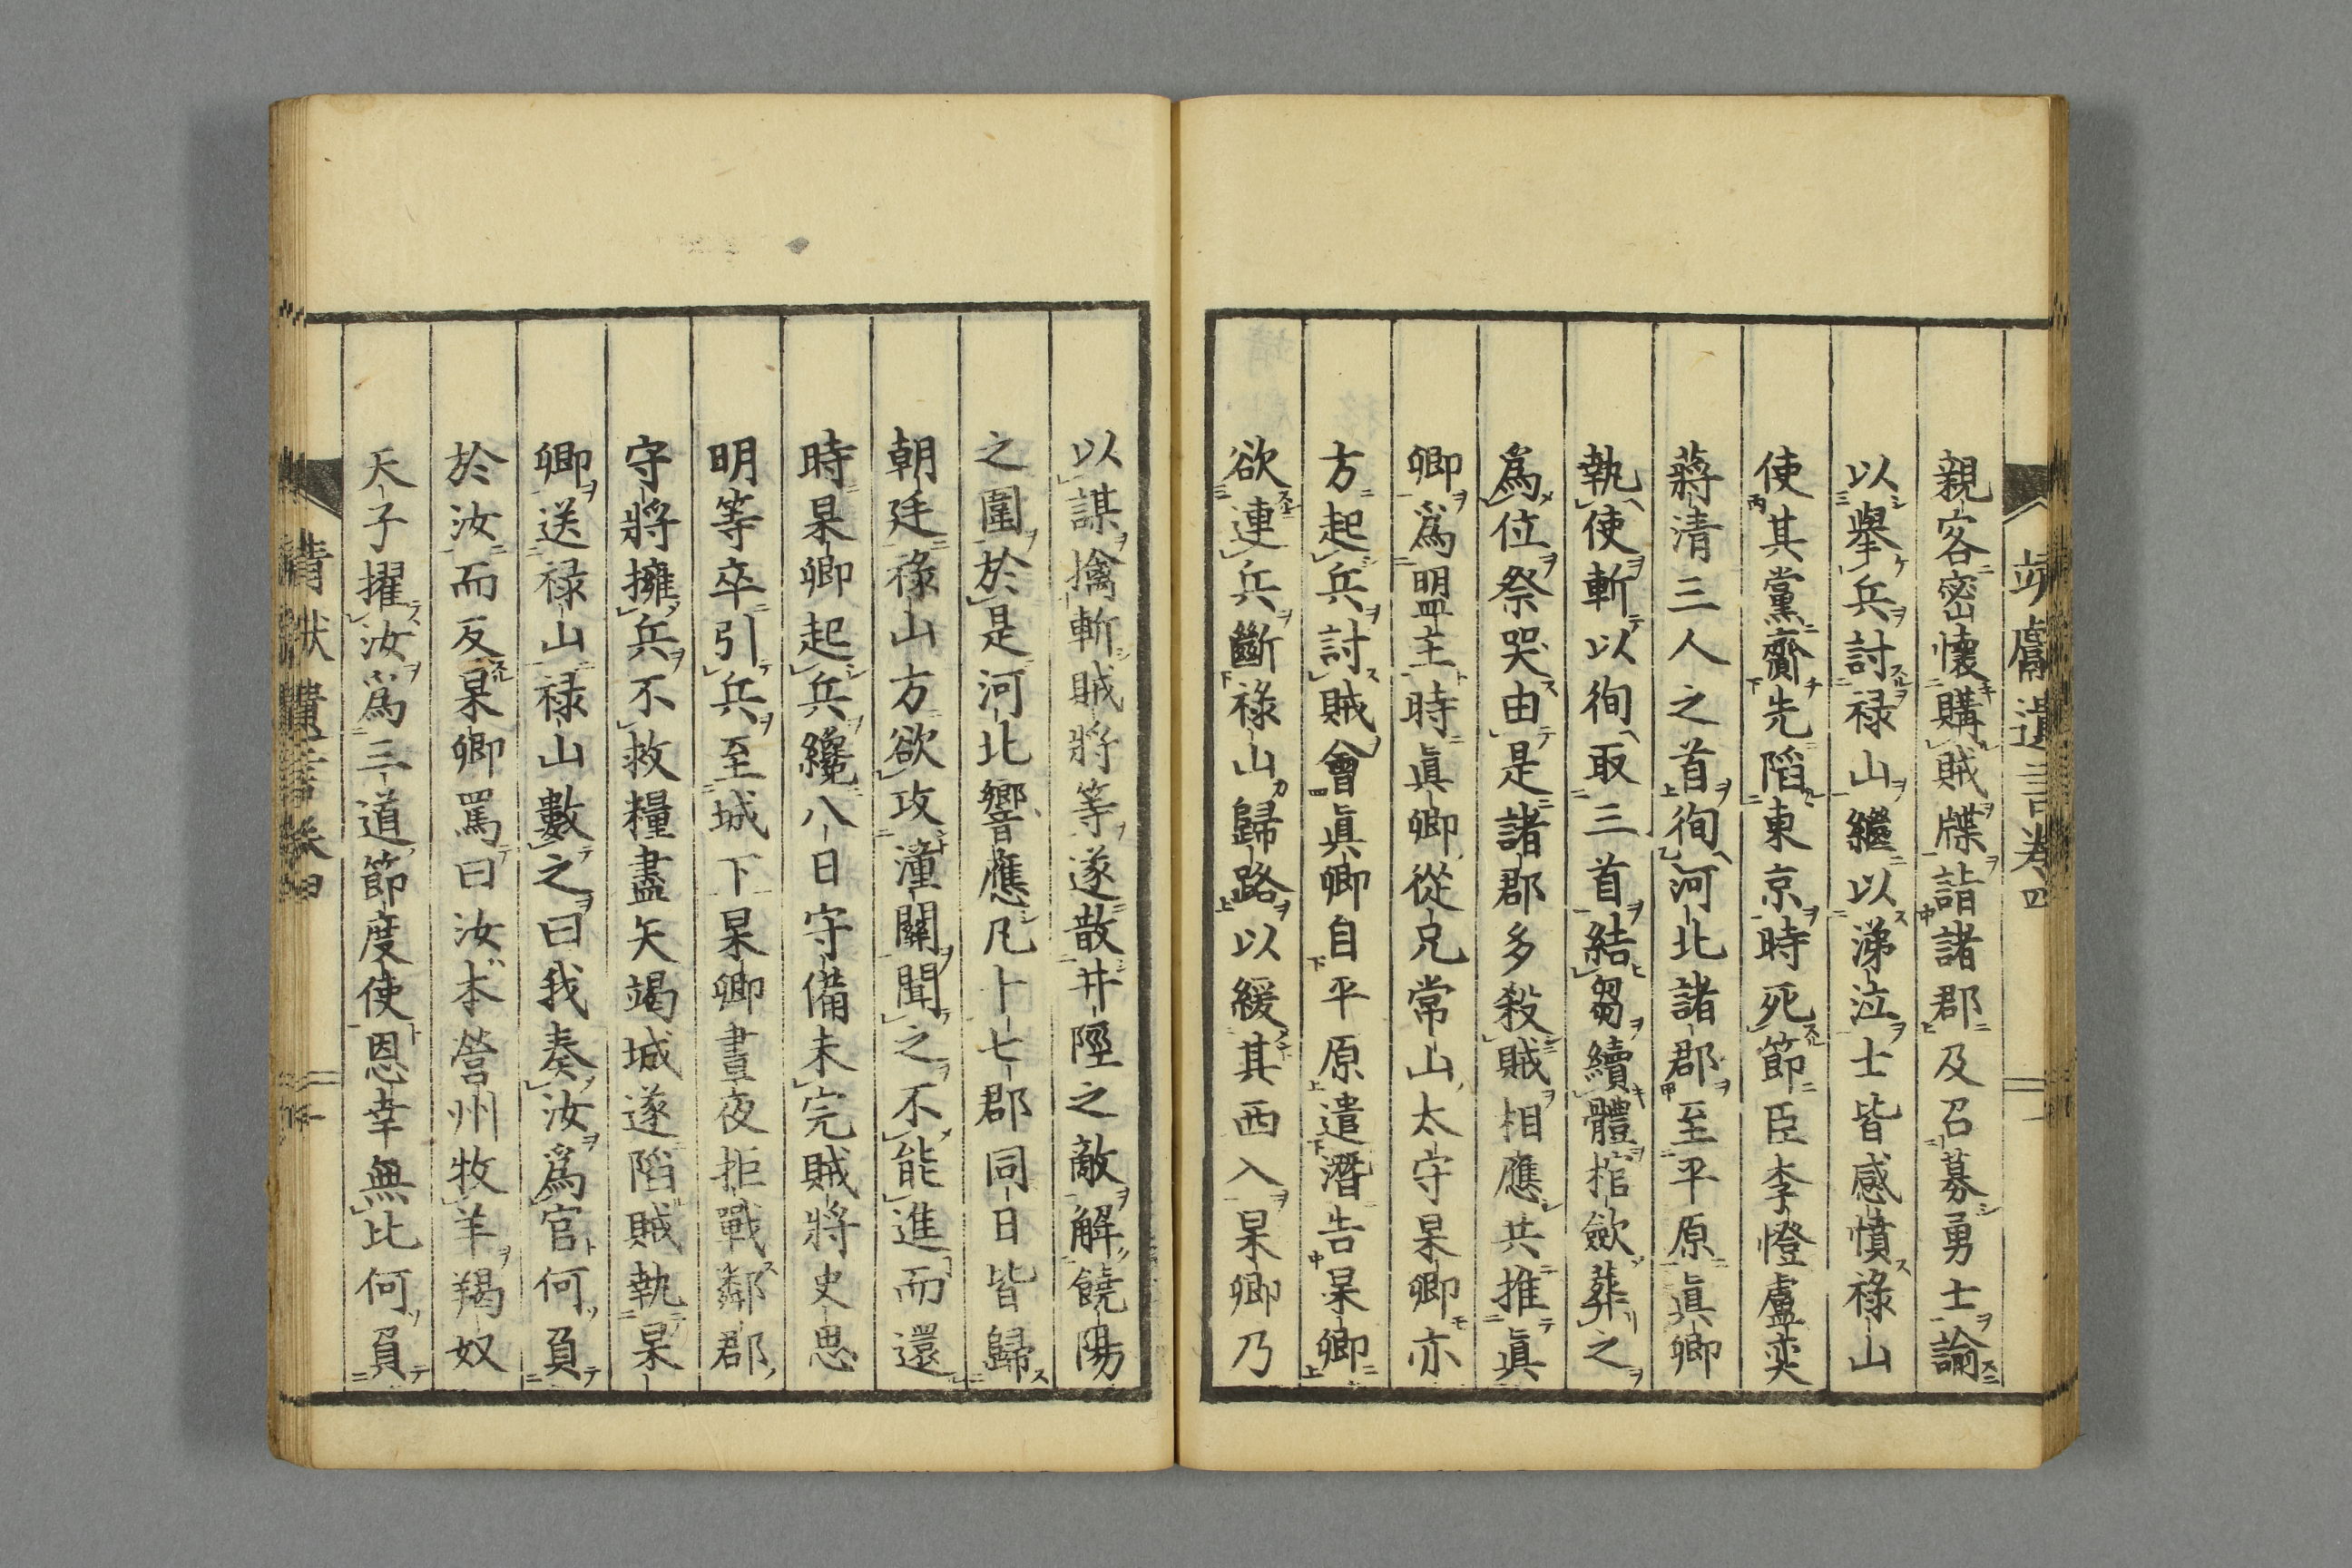 靖獻遺言卷四
親客密懷購賊牒詣諸郡及召募勇士論
以擧兵討祿山繼以涕泣士皆感憤祿山
使其黨齎先陷東京時死節臣李憕盧奕
蔣清三人之首徇河北諸郡至平原眞卿
執使斬以徇取三首結芻續體棺斂葬之
爲位祭哭由是諸郡多殺賊相應共推眞
卿爲盟主時眞卿從兄常山太守杲卿亦
方起兵討賊會眞卿自平原遣潛告杲卿
欲連兵斷祿山歸路以緩其西入杲卿乃
以謀擒斬賊將等遂散井陘之敵解饒陽
之圍於是河北響應凡十七郡同日皆歸
朝廷祿山方欲攻潼關聞之不能進而還
時杲卿起兵纔八日守備未完賊將史思
明等卒引兵至城下杲卿晝夜拒戰鄰郡
守將擁兵不救糧盡矢竭城遂陷賊執杲
卿送祿山祿山數之曰我奏汝爲官何負
於汝而反杲卿罵曰汝本營州牧羊羯奴
天子擢汝爲三道節度使恩幸無比何負
靖獻遺言卷四